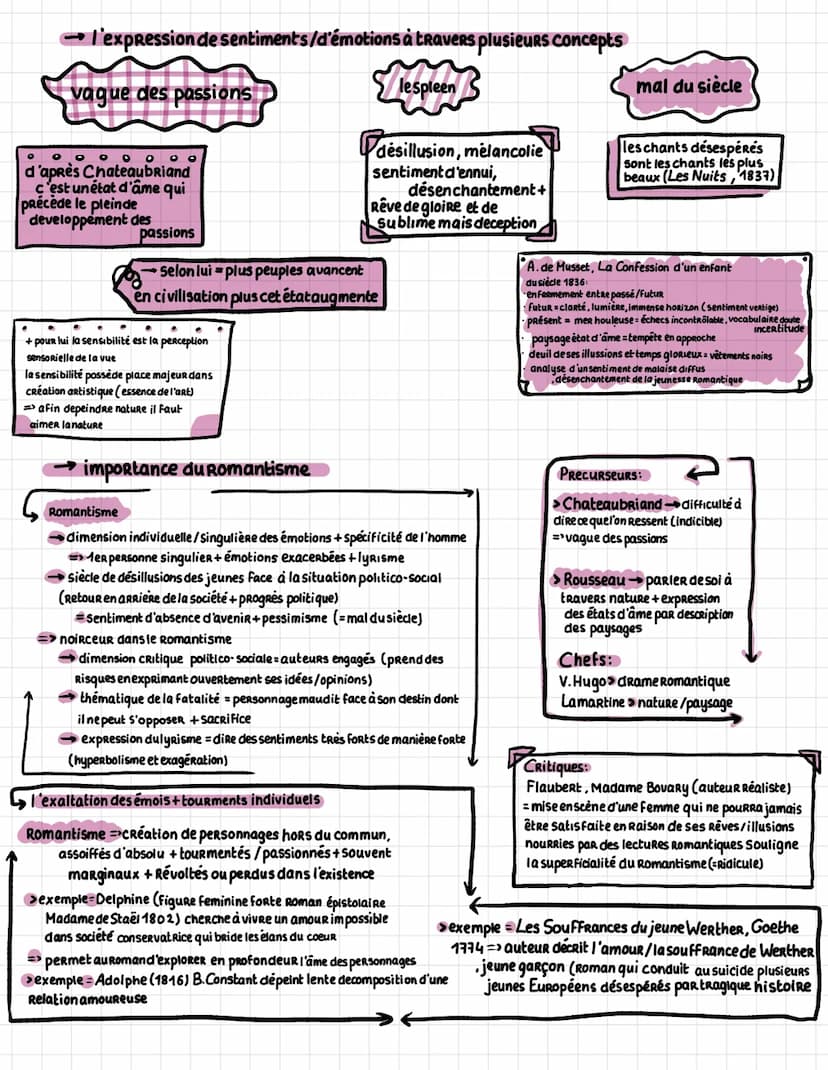 → l'expression de sentiments/d'émotions à travers plusieurs concepts
vague des passions
le spleen
mal du siècle
d'après Chateaubriand
c'est un état d'âme qui
précède le plein de
developpement des
passions
désillusion, mélancolie
sentiment d'ennui,
désenchantement +
Rêve de gloire et de
sublime mais deception
les chants désespérés
sont les chants les plus
beaux (Les Nuits, 1837)
→ selon lui = plus peuples avancent
en civilisation plus cet état augmente
A. de Musset, La Confession d'un enfant
du siècle 1836:
· enfermement entre passé/futur
· futur = clarté, lumière, immense horizon (sentiment vertige)
· présent = mer houleuse = échecs incontrôlable, vocabulaire doute
incertitude
· paysage état d'âme = tempête en approche
· deuil de ses illussions et temps glorieux = vêtements noirs
· analyse d'un sentiment de malaise diffus
, désenchantement de la jeunesse romantique
+ pour lui la sensibilité est la perception
sensorielle de la vue
la sensibilité possède place majeur dans
création artistique (essence de l'art)
=> afin depeindre nature il faut
aimer la nature
→ importance du romantisme
Romantisme
→ dimension individuelle/singulière des émotions + spécificité de l'homme
=> 1er personne singulier + émotions exacerbées + lyrisme
→ siècle de désillusions des jeunes face à la situation politico-social
(retour en arrière de la société + progrès politique)
= sentiment d'absence d'avenir + pessimisme (= mal du siècle)
=> noirceur dans le romantisme
→ dimension critique politico-sociale = auteurs engagés (prend des
risques en exprimant ouvertement ses idées/opinions)
→ thématique de la fatalité = personnage maudit face à son destin dont
il ne peut s'opposer + sacrifice
→ expression du lyrisme = dire des sentiments très forts de manière forte
(hyperbolisme et exagération)
Precurseurs:
> Chateaubriand → difficulté à
dire ce que l'on ressent (indicible)
=> vague des passions
> Rousseau → parler de soi à
travers nature + expression
des états d'âme par description
des paysages
Chefs:
V. Hugo > drame romantique
Lamartine > nature/paysage
Critiques:
Flaubert, Madame Bovary (auteur réaliste)
= mise en scène d'une femme qui ne pourra jamais
être satisfaite en raison de ses rêves/illusions
nourries par des lectures romantiques souligne
la superficialité du romantisme (= ridicule)
l'exaltation des émois + tourments individuels
Romantisme => création de personnages hors du commun,
assoiffés d'absolu + tourmentés/passionnés + souvent
marginaux + révoltés ou perdus dans l'existence
> exemple = Delphine (figure feminine forte roman épistolaire
Madame de Staël 1802) cherche à vivre un amour impossible
dans société conservatrice qui bride les élans du coeur
=> permet au roman d'explorer en profondeur l'âme des personnages
> exemple = Adolphe (1816) B. Constant dépeint lente decomposition d'une
relation amoureuse
> exemple = Les Souffrances du jeune Werther, Goethe
1774 => auteur décrit l'amour/la souffrance de Werther
, jeune garçon (roman qui conduit au suicide plusieurs
jeunes Européens désespérés par tragique histoire